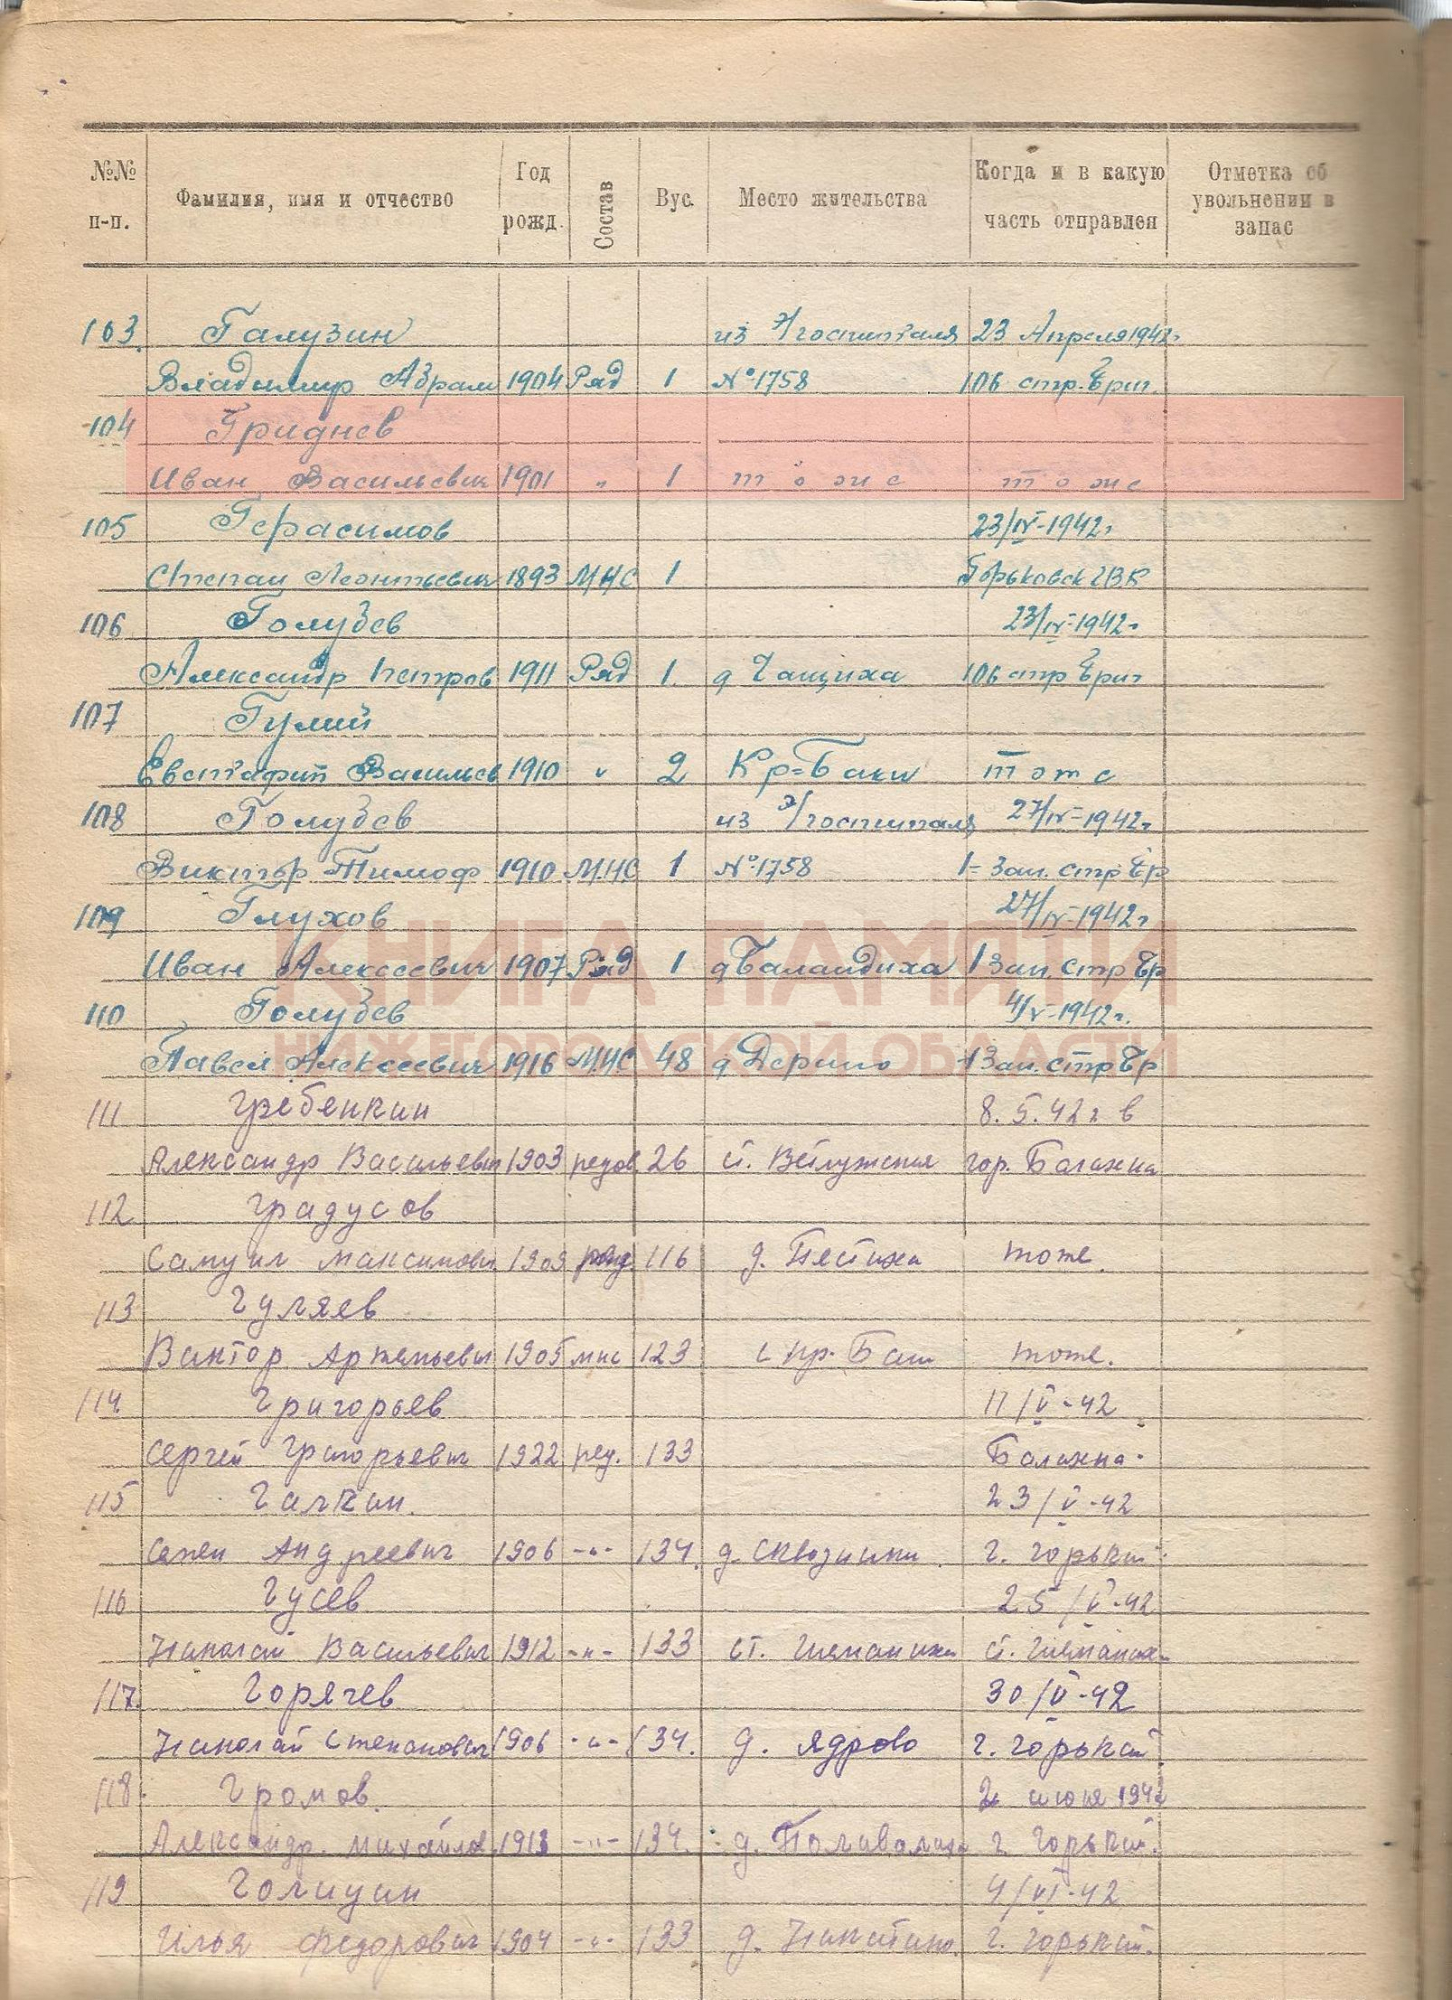 №№ п-п. Фамилия, имя и отчество Год рожд. Состав Вус. Место жительства Когда и в какую часть отправлен Отметка об увольнении в запас
103. Галузин из э/госпиталя 23 Апреля 1942г
Владимир Абрам 1904 Ряд 1 №1758 106 стр. бриг.
104 Гриднев
Иван Васильевич 1901 " 1 то же то же
105 Герасимов 23/IV-1942г
Степан Леонтьевич 1893 МНС 1 Горьковск ГВК
106 Голубев 23/IV-1942г
Александр Петров 1911 Ряд 1. д Чащиха 106 стр бриг
107 Гулий
Евстафий Васильев 1910 " 2 Кр=Баки то же
108 Голубев из э/госпиталя 27/IV-1942г
Виктор Тимоф 1910 М.Н.С. 1 №1758 1- Зап. стр бр
109 Глухов 27/IV-1942г
Иван Алексеевич 1907 Ряд 1 д Баландиха 1 Зап. Стр бр
КНИГА ПАМЯТИ
110 Голубев 4/V-1942г.
НИЖЕГОРОДСКОЙ ОБЛАСТИ
Павел Алексеевич 1916 М.Н.С 48 д Дерино 1 Зап. стр бр
111 Гребенкин 8.5.42 г в
Александр Васильевич 1903 рядов 26 гор. Балахна
112 Градусов
Самуил Максимович 1909 ряд. 116 д. Пестиха тоже.
113 Гуляев
Виктор Артемьевич 1905 мнс 123 тоже.
114 Григорьев 11/V-42
Сергей Григорьевич 1922 ряд. 133 Балахна.
115 Галкин. 23/V-42
Семен Андреевич 1906 -"- 134. г. Горький.
116 Гусев 25/V-42
Николай Васильевич 1912 -"- 133 ст. Шеманиха ст. Шеманиха
117. Горячев 30/V-42
Николай Степанович 1906 -"- 134. д. Ядрово г. Горький
118. Громов. 2 июня 1942
Александр. Михайлов 1913 -"- 134. г. Горький.
119 Голицин 4/VI-42
Илья Федорович 1904 -"- 133 д. Никитино. г. Горький.